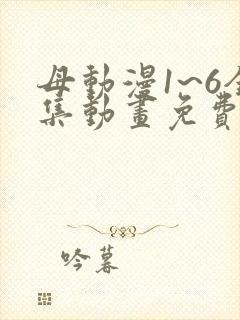 母動漫1~6全
集動畫免費
吟暮